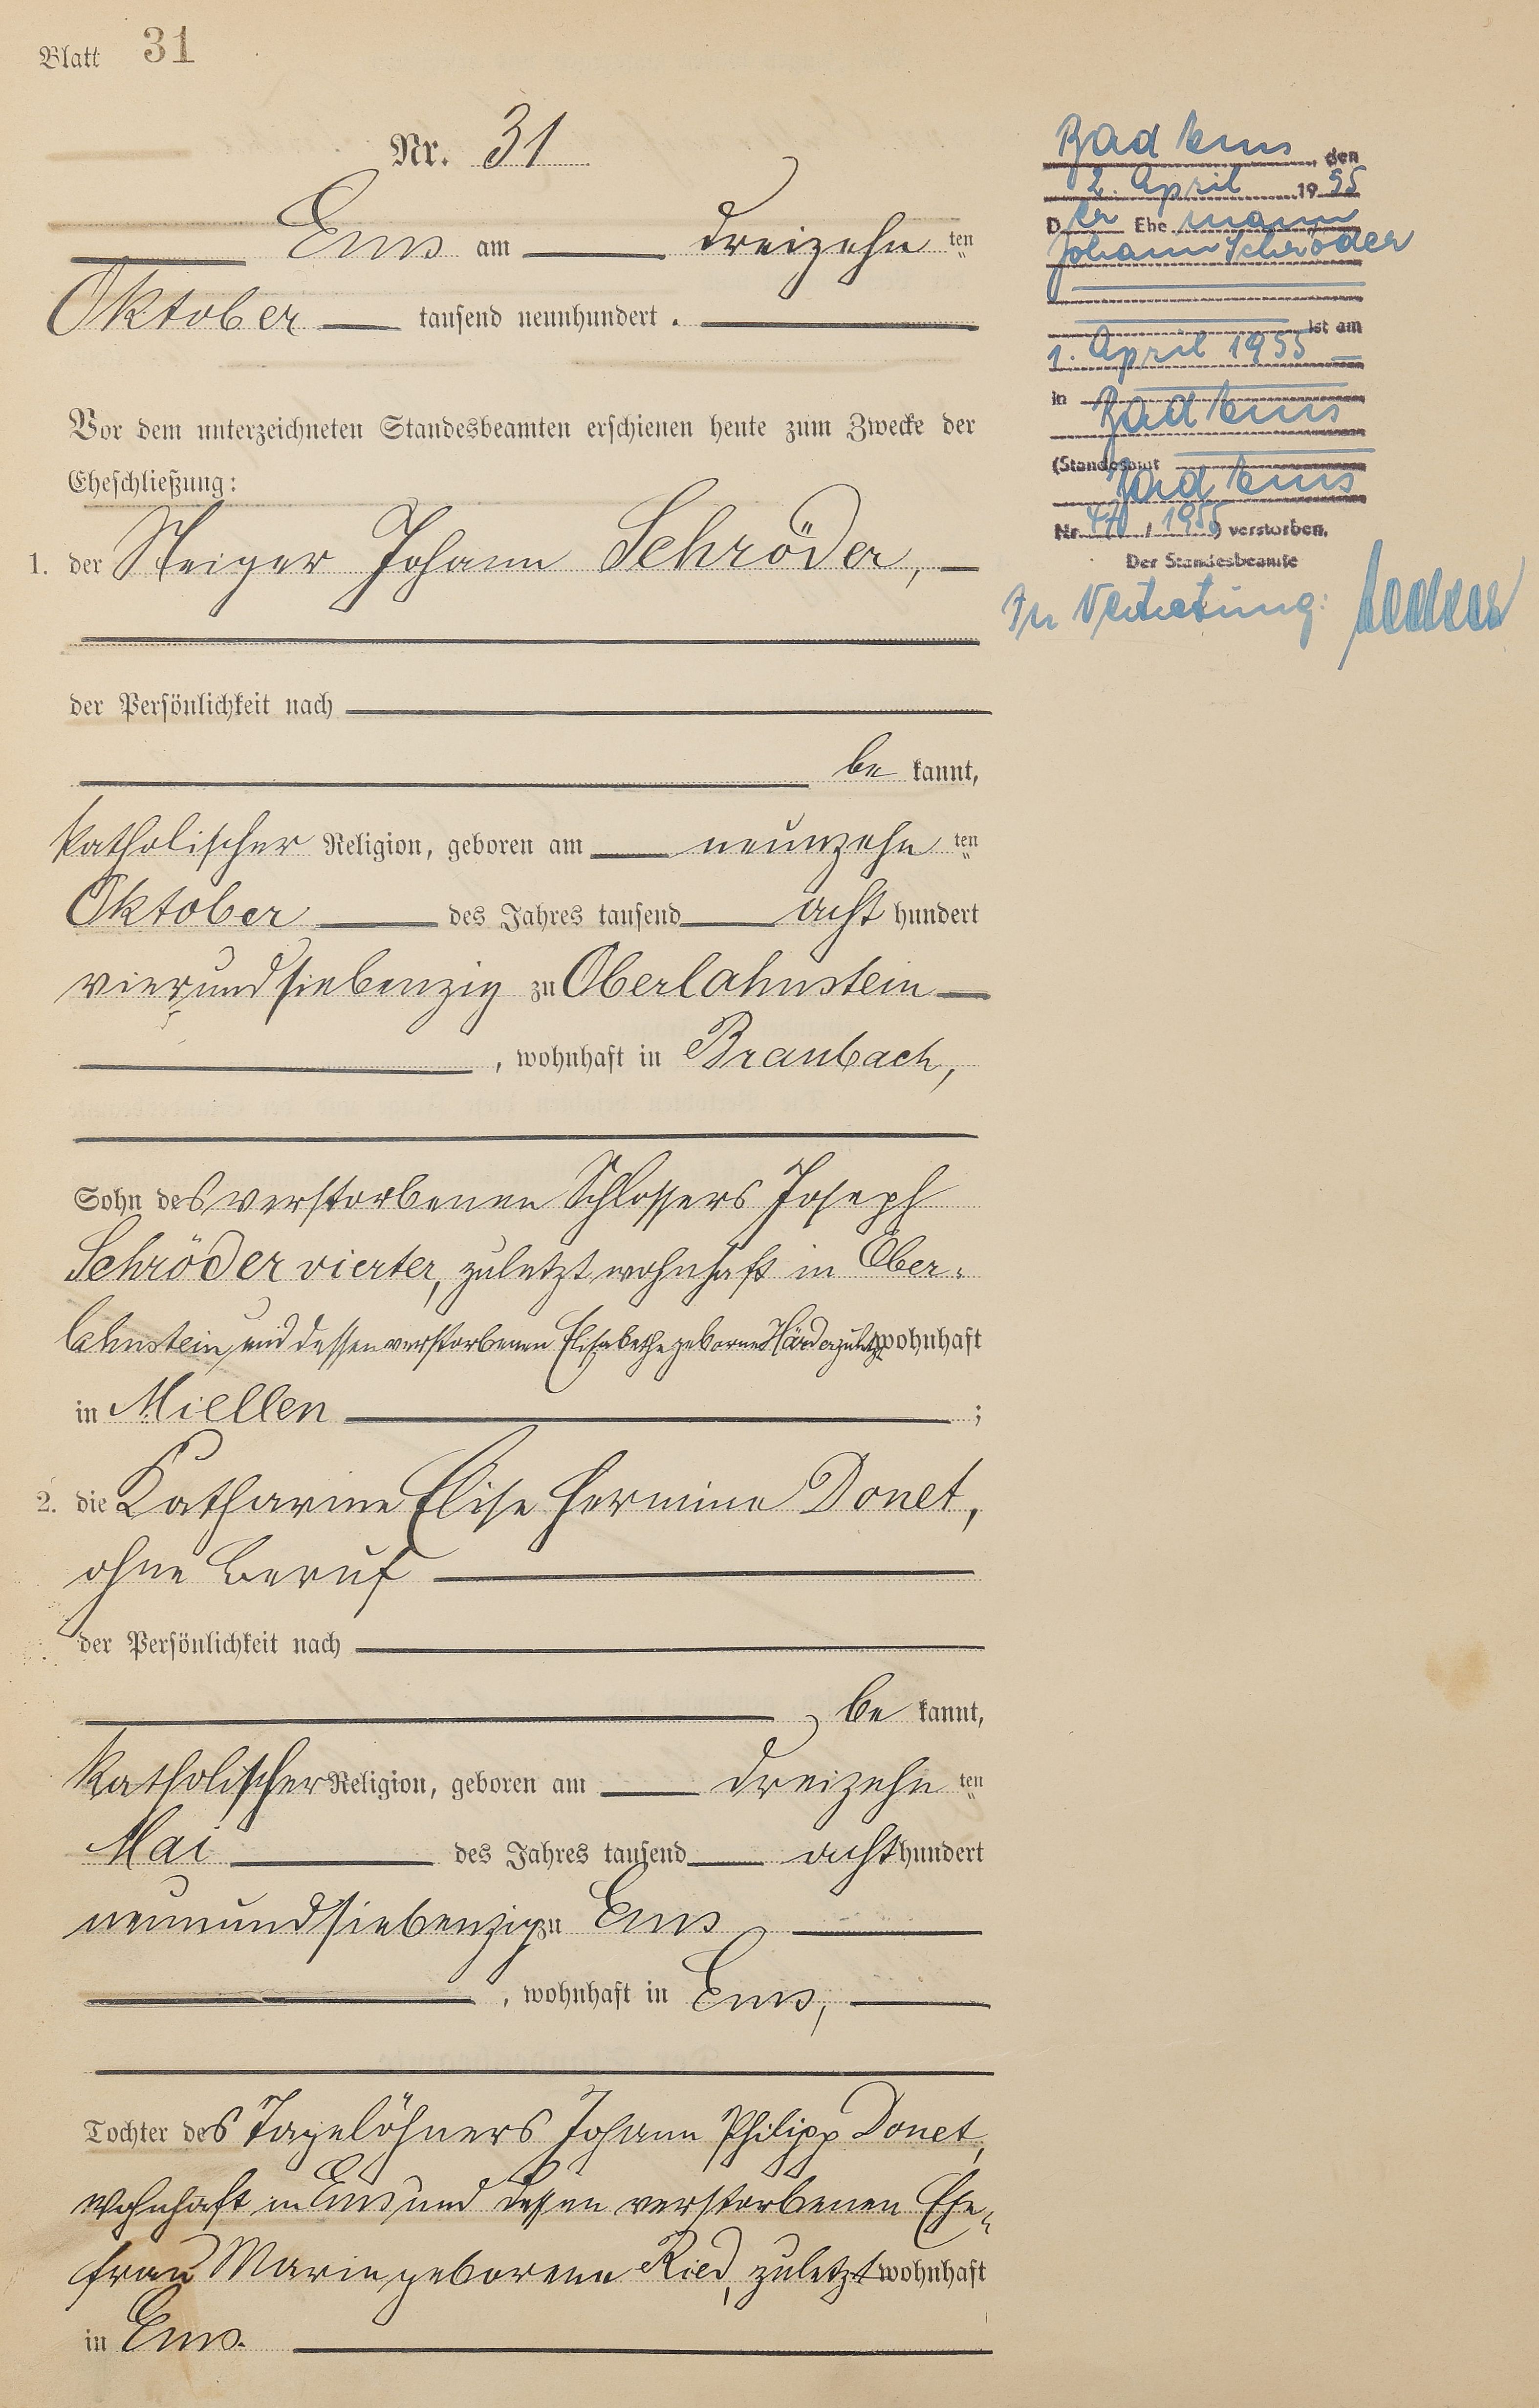 Blatt 31
Nr. 31
Ems am dreizehn ten
Oktober tausend neunhundert.
Vor dem unterzeichneten Standesbeamten erschienen heute zum Zwecke der
Eheschließung:
1. der Steiger Johann Schröder,
der Persönlichkeit nach
be kannt,
katholischer Religion, geboren am neunzehn ten
Oktober des Jahres tausend acht hundert
vierundsiebenzig zu Oberlahnstein
, wohnhaft in Braubach,
Sohn des verstorbenen Schlossers Joseph
Schröder vierter, zuletzt wohnhaft in Ober-
lahnstein und dessen verstorbenen Elisabethe geborne zuletzt wohnhaft
in Miellen ;
2. die Katharine Elise Hermine Donet,
ohne Beruf
der Persönlichkeit nach
be kannt,
katholischer Religion, geboren am dreizehn ten
Mai des Jahres tausend acht hundert
neunundsiebenzig zu Ems
, wohnhaft in Ems,
Tochter des Tagelöhners Johann Philipp Donet,
wohnhaft in Ems und dessen verstorbenen Ehe-
frau Marie geborene Ried, zuletzt wohnhaft
in Ems.
Bad Ems, den
2. April 1955
Der Ehemann
Johann Schröder
ist am
1. April 1955
in Bad Ems
(Standesamt
Bad Ems
Nr. / 1955) verstorben.
Der Standesbeamte
In Vertretung: